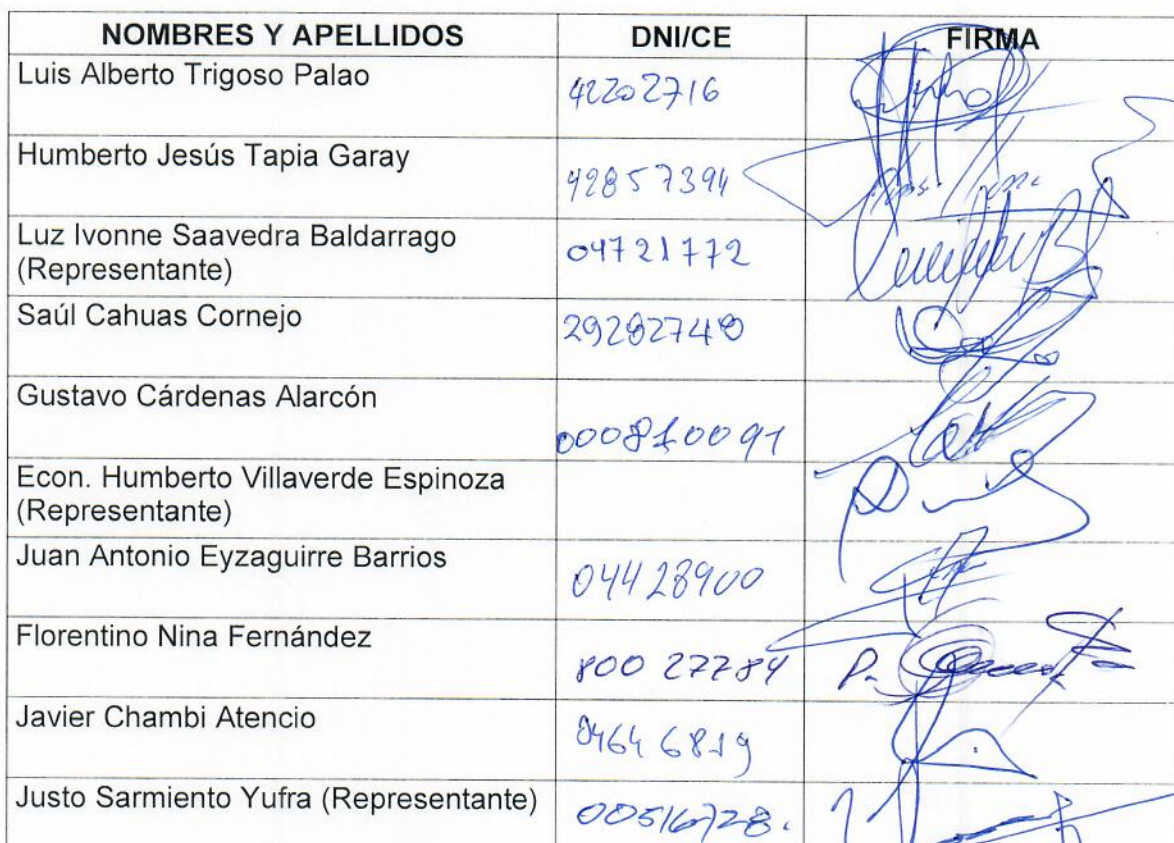 NOMBRES Y APELLIDOS DNI/CE FIRMA
Luis Alberto Trigoso Palao 42202716
Humberto Jesús Tapia Garay 42857394
Luz Ivonne Saavedra Baldarrago
(Representante) 04721772
Saúl Cahuas Cornejo 29282740
Gustavo Cárdenas Alarcón 000810091
Econ. Humberto Villaverde Espinoza
(Representante)
Juan Antonio Eyzaguirre Barrios 04428900
Florentino Nina Fernández 800 27784
Javier Chambi Atencio 04646819
Justo Sarmiento Yufra (Representante) 00516728.